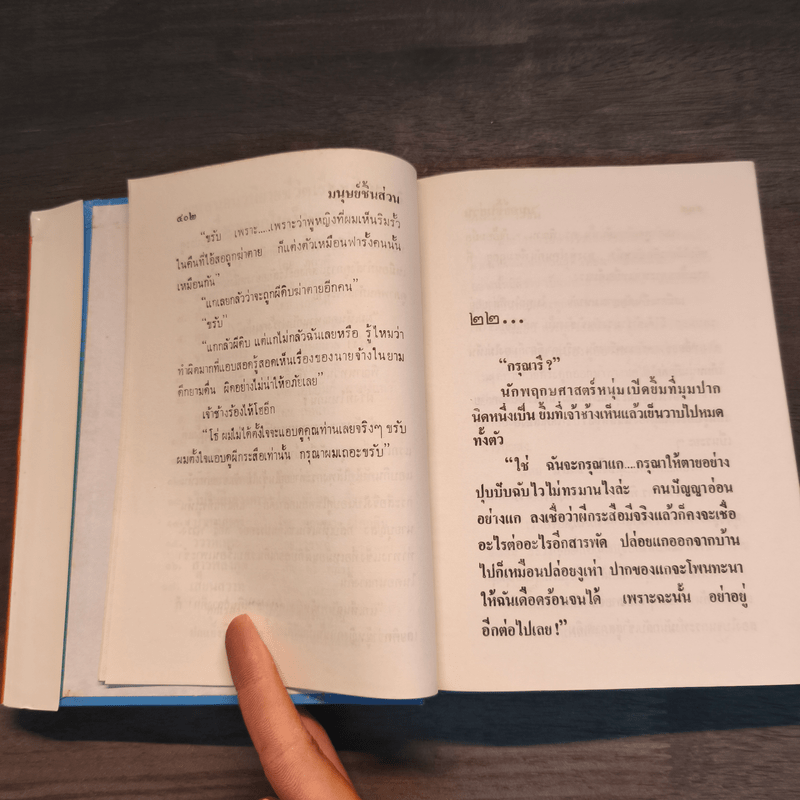 ๔๐๒
มนุษย์ชิ้นส่วน
“ขรับ เพราะ....เพราะว่าผู้หญิงที่ผมเห็นริมรั้ว
ในคืนที่ไอ้สอถูกฆ่าตาย ก็แต่งตัวเหมือนฟารั้งคนนั้น
เหมือนกัน”
“แกเลยกลัวว่าจะถูกผีดิบฆ่าตายอีกคน”
“ขรับ”
“แกกลัวผีดิบ แต่แกไม่กลัวฉันเลยหรือ รู้ไหมว่า
ทำผิดมากที่แอบสอดรู้สอดเห็นเรื่องของนายจ้างในยาม
ดึกยามดื่น ผิดอย่างไม่น่าให้อภัยเลย”
เจ้าช้างร้องไห้โฮอีก
“โธ่ ผมไม่ได้ตั้งใจจะแอบดูคุณท่านเลยจริงๆ ขรับ
ผมตั้งใจแอบดูผีกระสือเท่านั้น กรุณาผมเถอะขรับ”
๒๒...
“กรุณารึ ?”
นักพฤกษศาสตร์หนุ่มเปิดยิ้มที่มุมปาก
นิดหนึ่งเป็น ยิ้มที่เจ้าช้างเห็นแล้วเย็นวาบไปหมด
ทั้งตัว
“ใช่ ฉันจะกรุณาแก....กรุณาให้ตายอย่าง
ปุบปับฉับไวไม่ทรมานไงล่ะ คนปัญญาอ่อน
อย่างแก ลงเชื่อว่าผีกระสือมีจริงแล้วก็คงจะเชื่อ
อะไรต่ออะไรอีกสารพัด ปล่อยแกออกจากบ้าน
ไปก็เหมือนปล่อยงูเห่า ปากของแกจะโพนทะนา
ให้ฉันเดือดร้อนจนได้ เพราะฉะนั้น อย่าอยู่
อีกต่อไปเลย !”